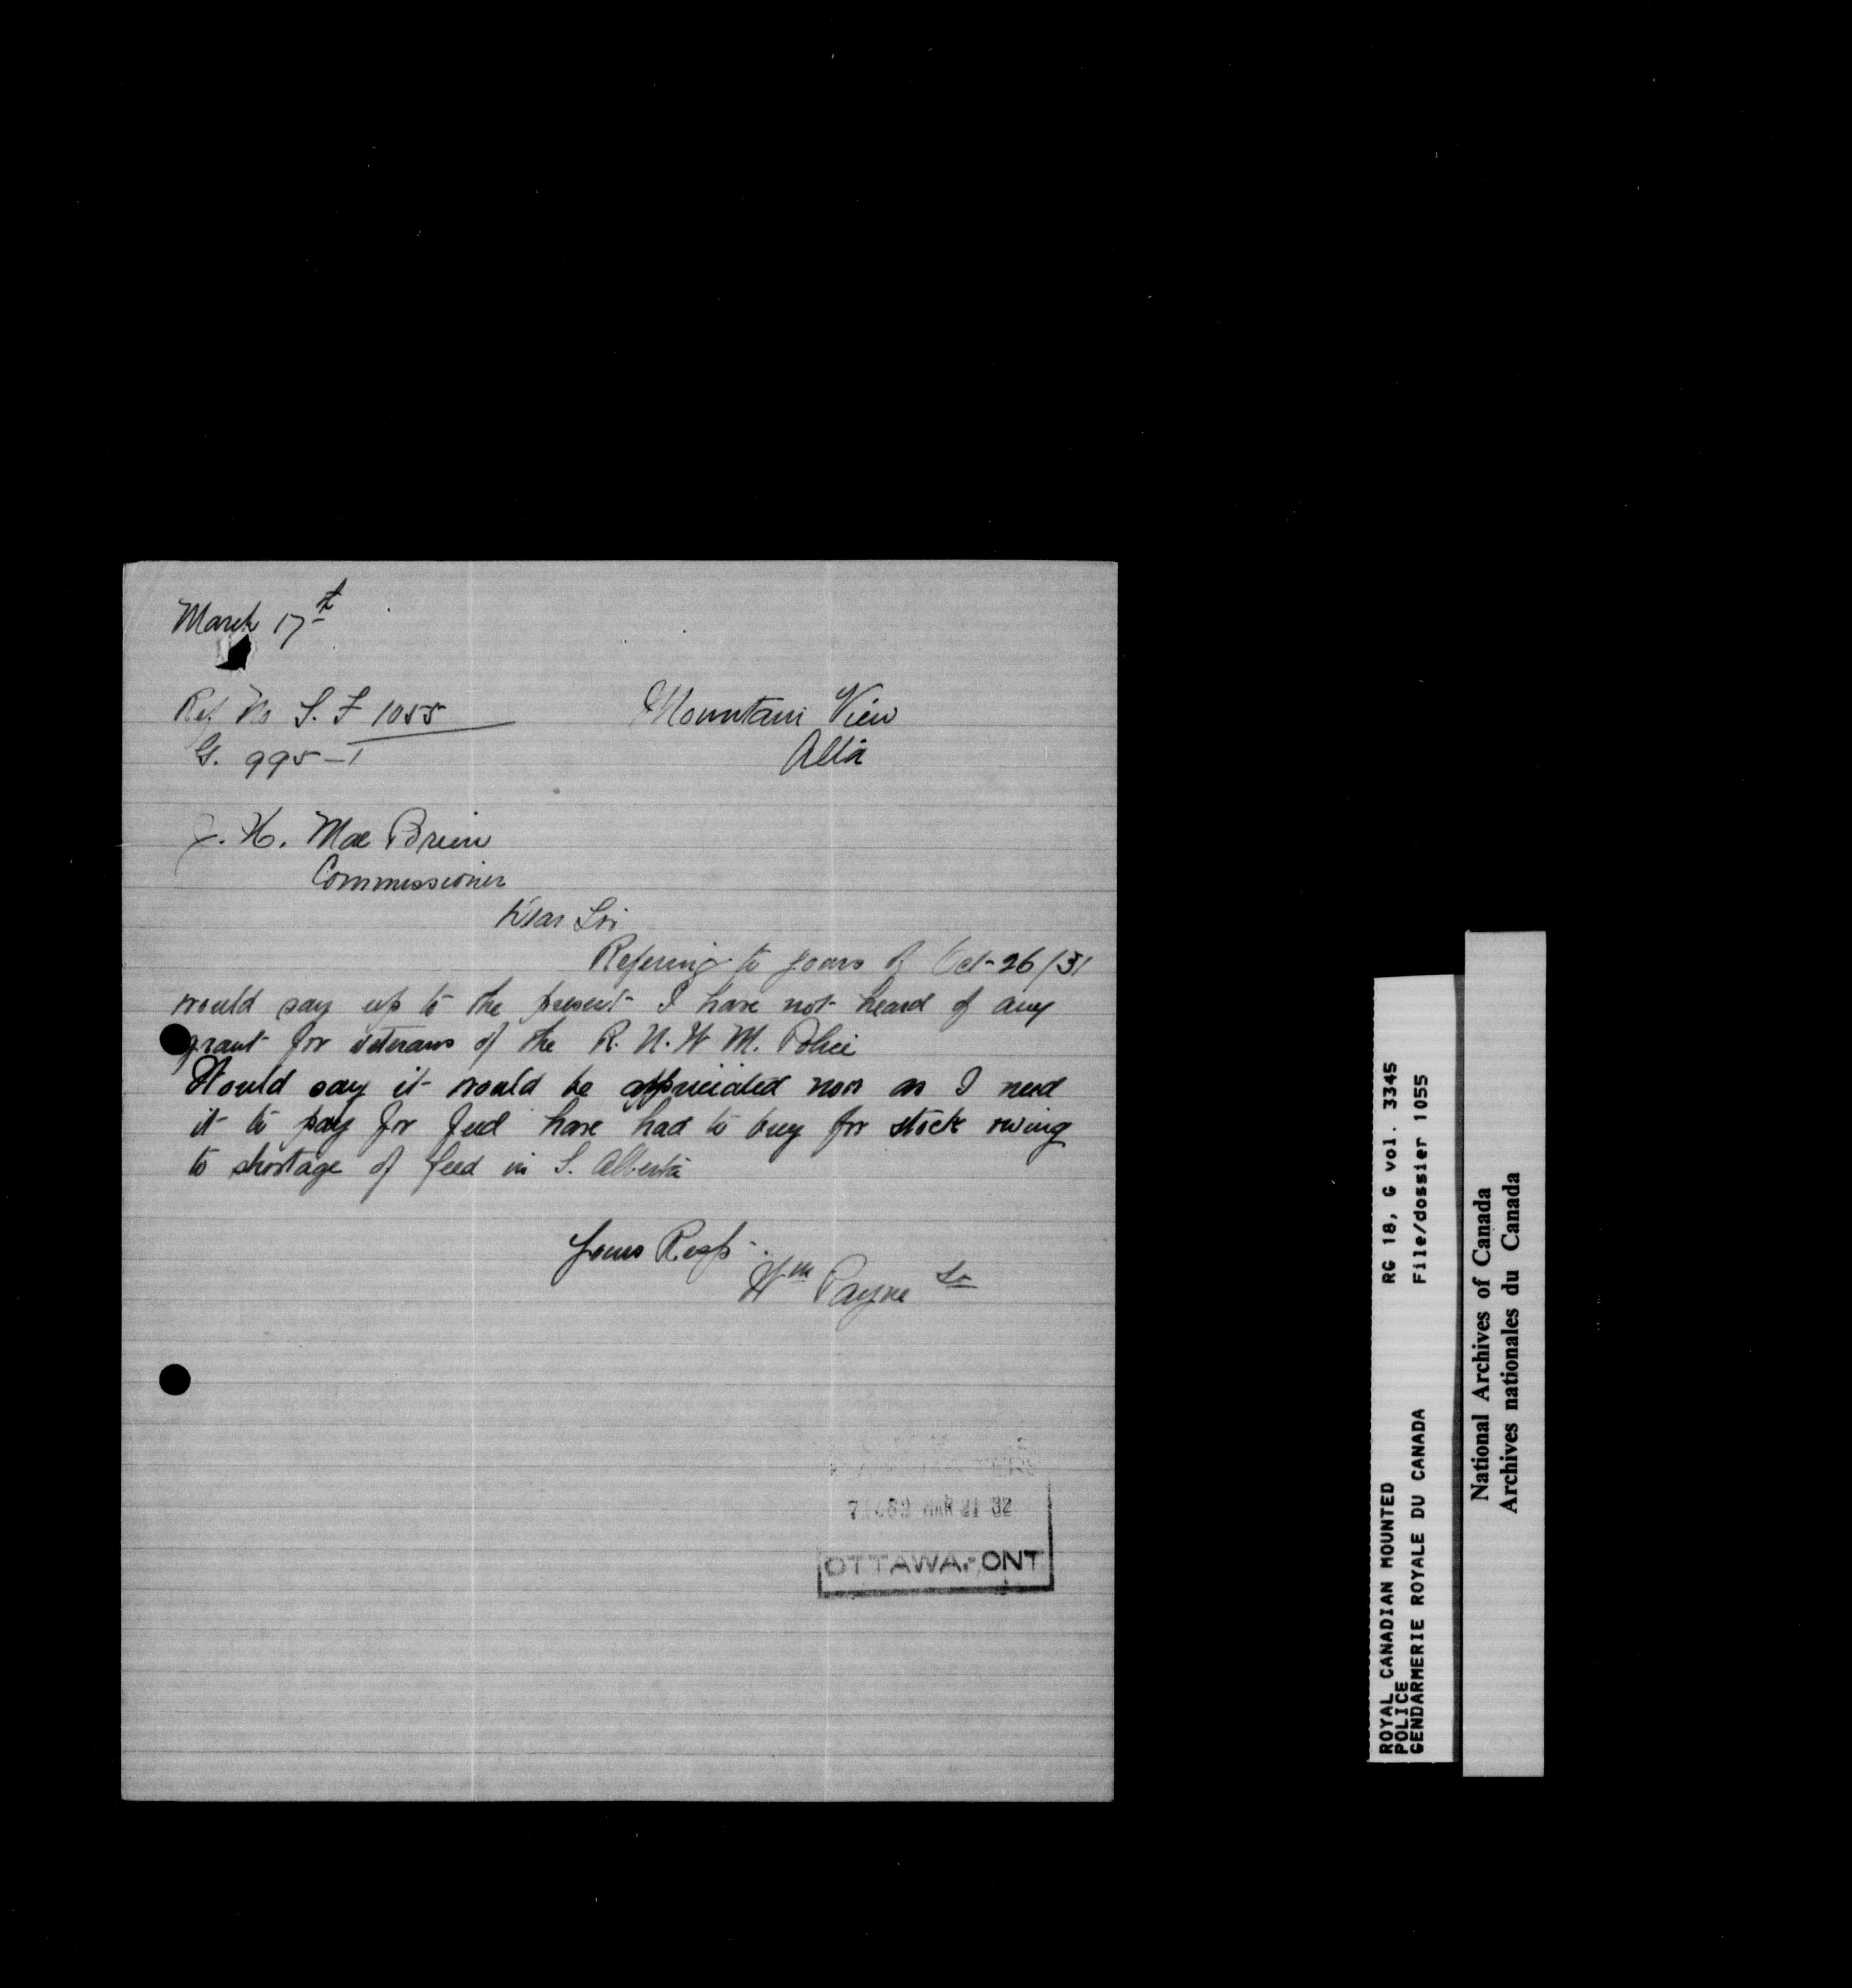 March 17th
Ref. No S. F 1055
G. 995-1
Mountain View
Alta
J. H. Mac Brien
Commissioner
Dear Sir
Refering to yours of Oct-26/31
would say up to the present I have not heard of any
grant for veterans of the R. N. W M. Police
Would say it would be appreciated now as I need
it to pay for feed have had to buy for stock owing
to shortage of feed in S. Alberta
Yours Resp.
Wm Payne Sr
MAR 21 32
OTTAWA.- ONT
ROYAL CANADIAN MOUNTED
POLICE
GENDARMERIE ROYALE DU CANADA
RG 18, G vol. 3345
File/dossier 1055
National Archives of Canada
Archives nationales du Canada